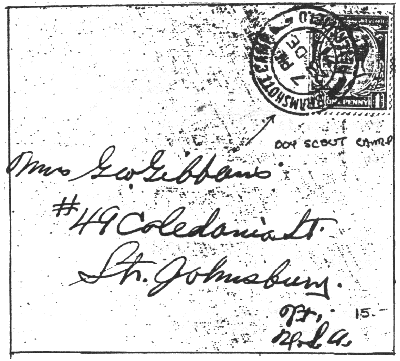 BRAMSHOTT CAMP
7 PM
DE
ONE PENNY
BOY SCOUT CAMP
Mrs Geo. Gibbons
#49 Caledonia St.
St. Johnsbury.
Vt.
15.-
U.S.A.